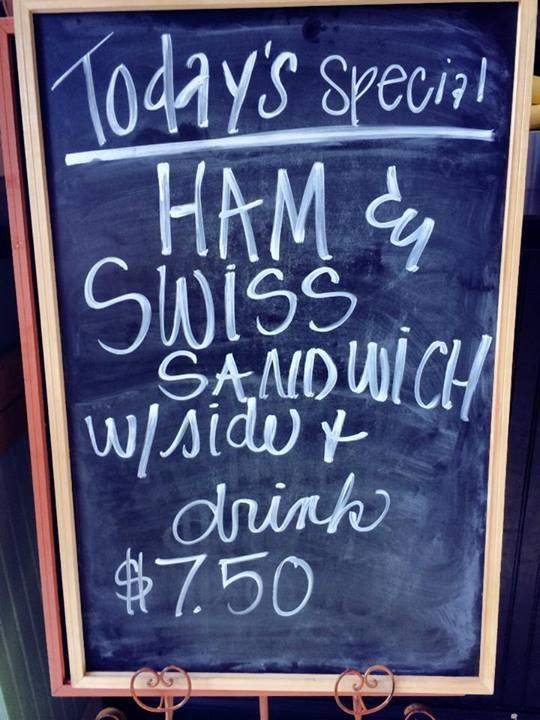 Today's Special
HAM &
SWiSS
SANDWiCH
w/side +
drink
$7.50